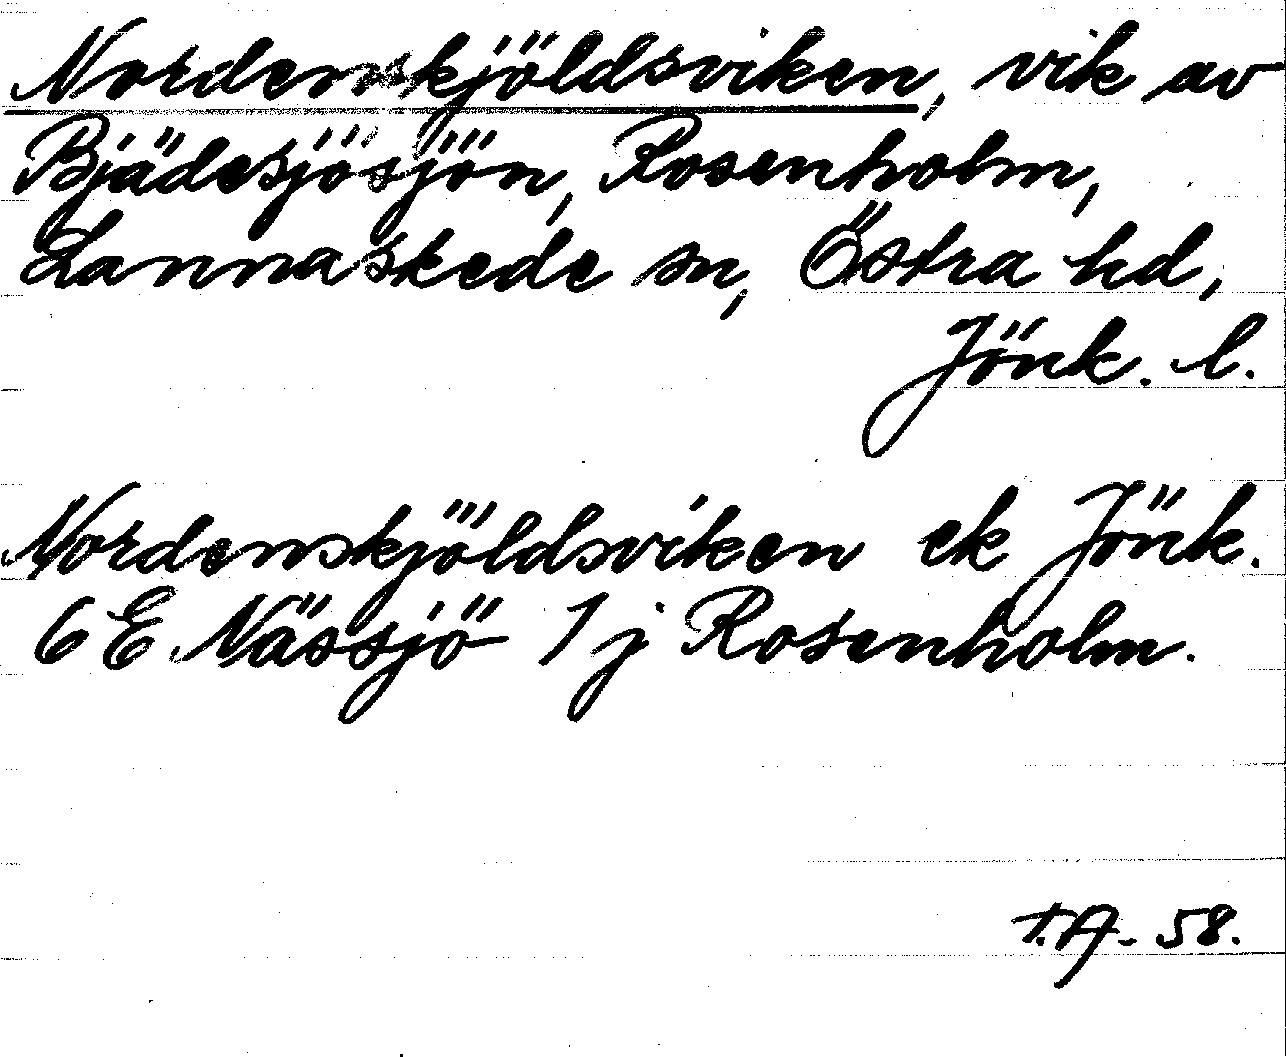 Nordenskjöldsviken, vik av
Bjädesjösjön, Rosenholm,
Lannaskede sn, Östra hd,
Jönk. l.
Nordenskjöldsviken ek Jönk.
6 E Nässjö 1 j Rosenholm.
T.A. 58.